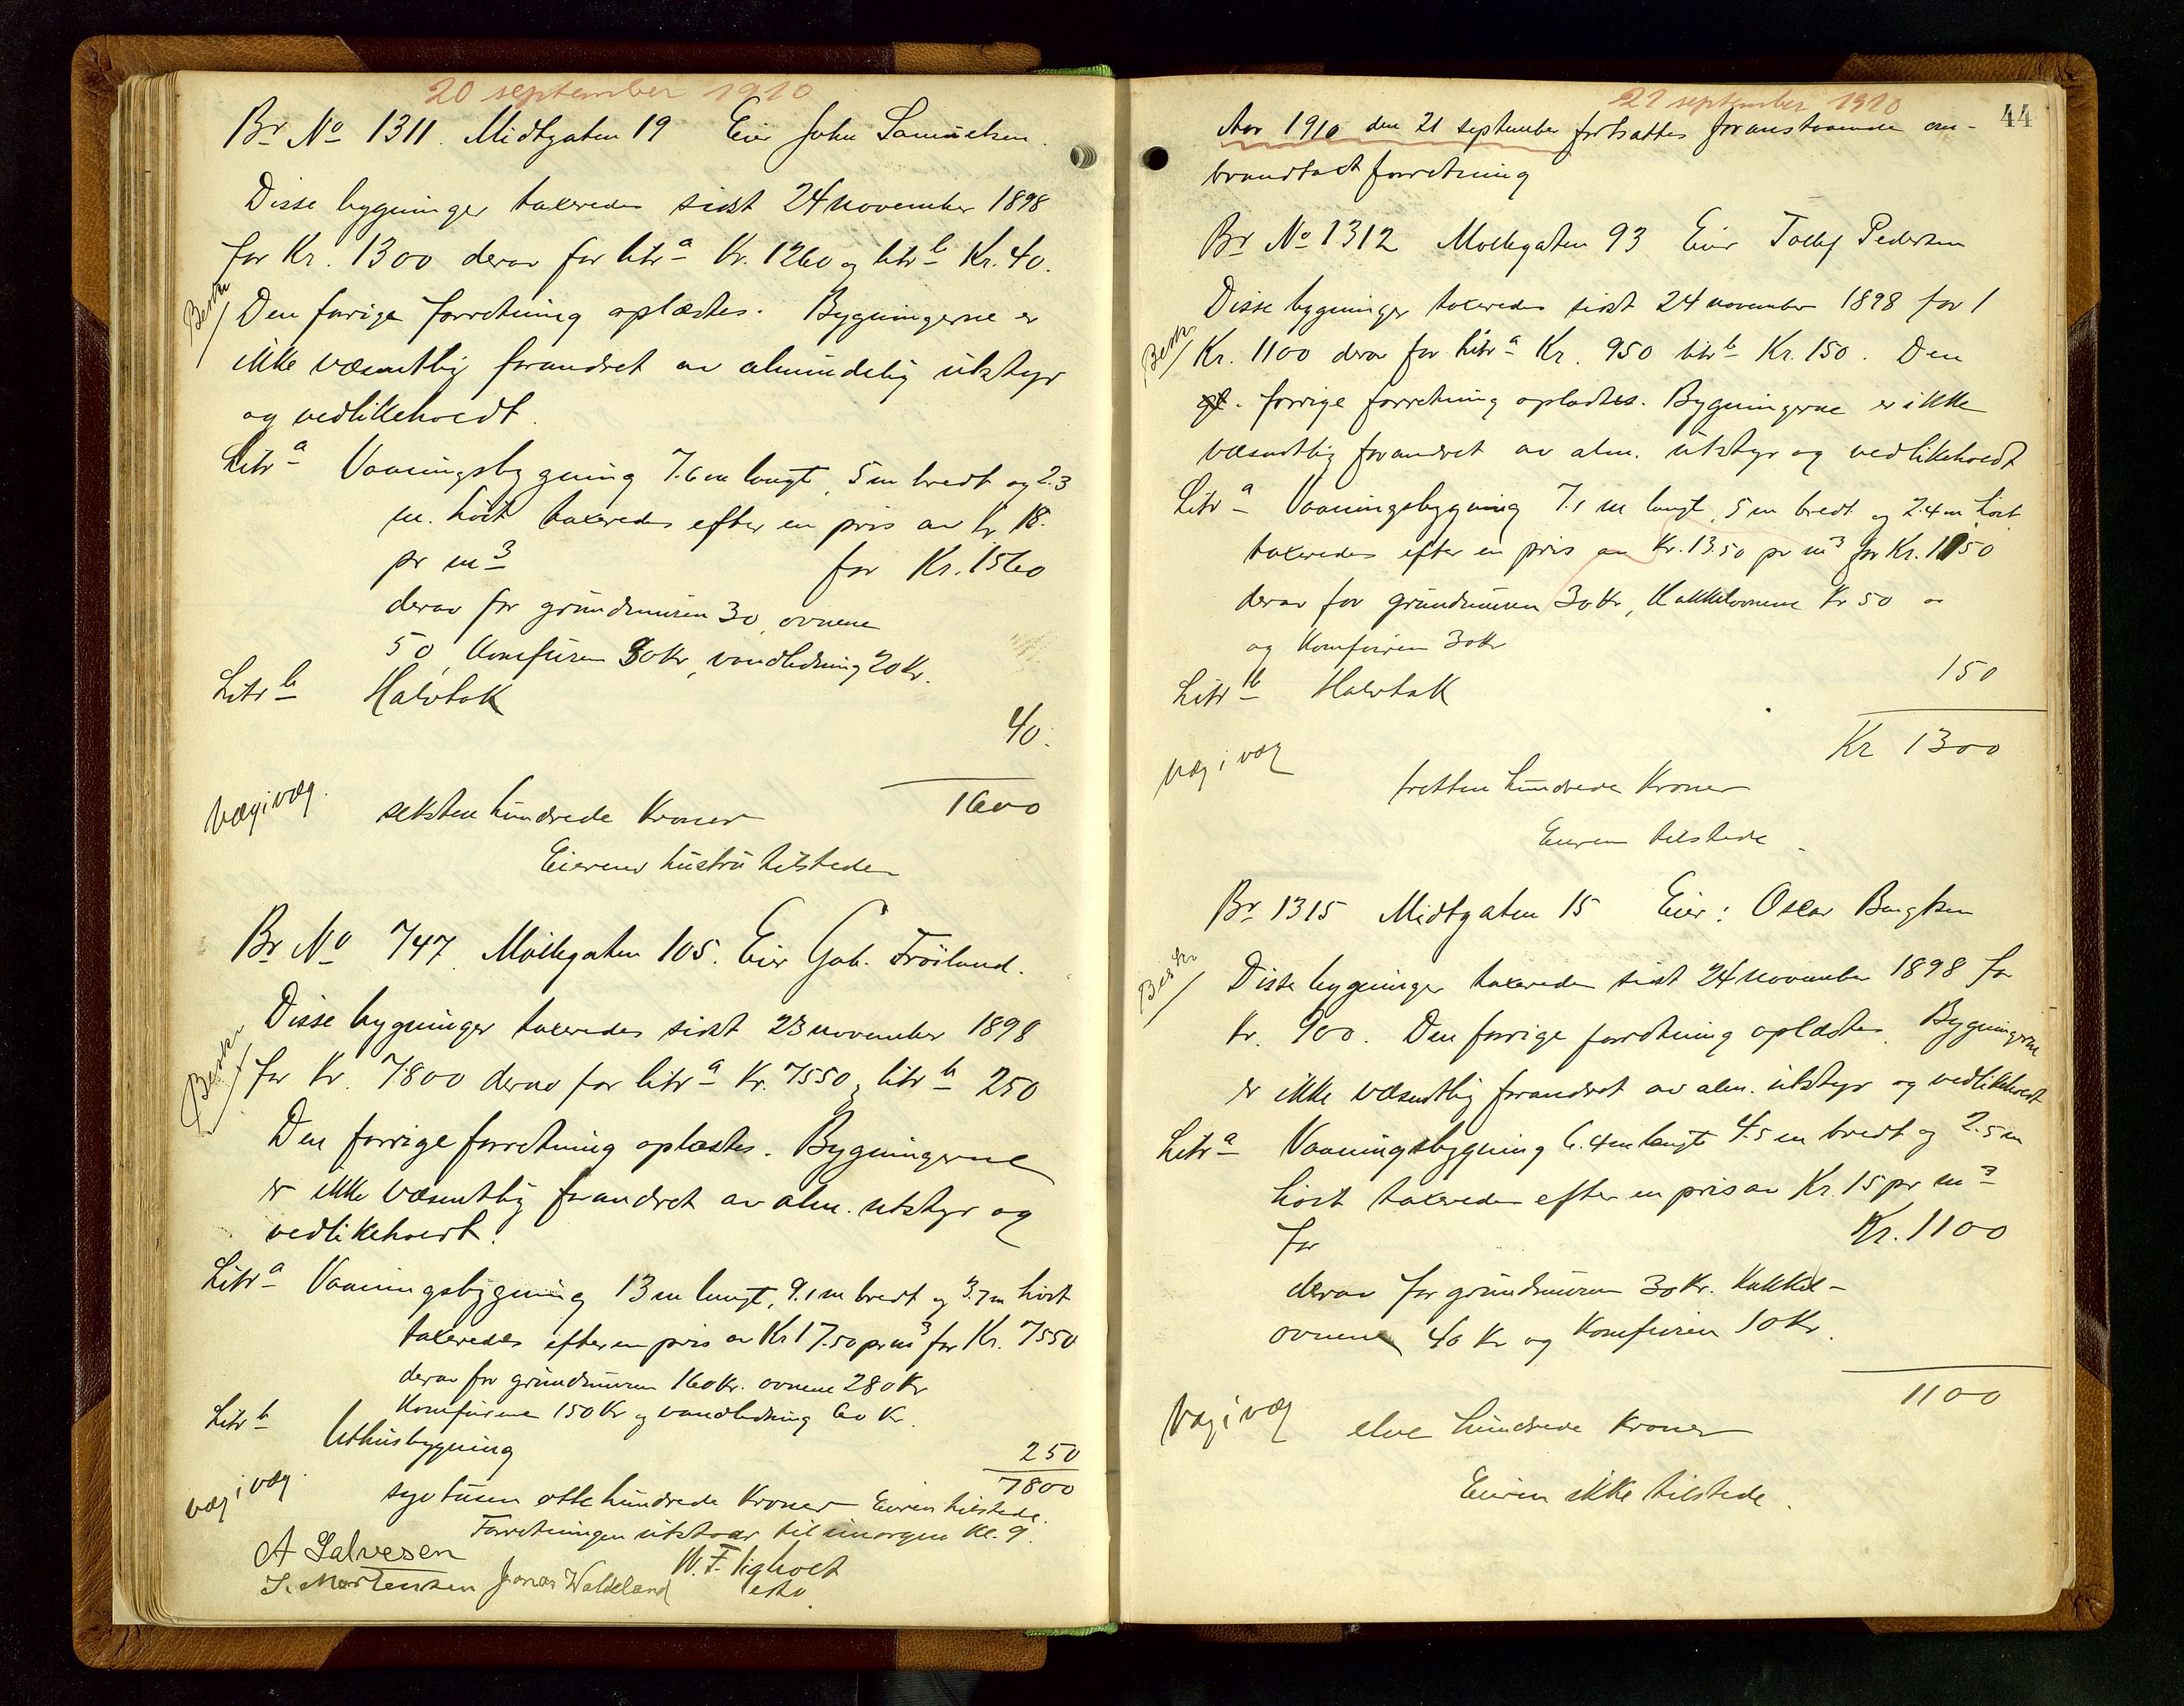 20 september 1910
Br No 1311. Midtgaten 19 Eier John Samuelsen.
Disse bygninger taxeredes sidst 24 november 1898
for Kr. 1300 derav for litr a Kr. 1260 og litr b Kr. 40.
Beskr
Den forrige forretning oplæstes. Bygningerne er
ikke væsentlig forandret av almindelig utstyr
og vedlikeholdt.
Litr a Vaaningsbygning 7.6 m langt, 5 m bredt og 2.3
m. höit taxeredes efter en pris av kr 18.
pr m3 for Kr. 1560
derav for grundmuren 30, ovnene
50, Komfuren 30 Kr, vandledning 20 Kr.
Litr b Halvtak
40.
Væg i væg. seksten hundrede Kroner 1600
Eierens hustru tilstede
Br No 747. Möllegaten 105. Eier Gab. Fröiland.
Disse bygninger taxeredes sidst 23 november 1898
Beskr
for Kr. 7800 derav for litr a Kr. 7550 og litr b 250
Den forrige forretning oplæstes. Bygningerne
er ikke væsentlig forandret av alm. utstyr og
vedlikeholdt.
Litr a Vaaningsbygning 13 m langt, 9.1 m bredt og 3.7 m höit
taxeredes efter en pris av Kr 17.50 pr m3 for Kr. 7550
derav for grundmuren 160 Kr. ovnene 280 Kr
Komfurene 150 Kr og vandledning 60 Kr.
Litr b Uthusbygning
250
7800
væg i væg. syv tusen otte hundrede Kroner Eieren tilstede.
Forretningen utstaar til imorgen Kl. 9.
A Salvesen
S. Mortensen Jonas Waldeland
21 september 1910
44
Aar 1910 den 21 september fortsattes foranstaaende om-
brandtaxtforretning
Br No 1312 Mollegaten 93 Eier Tollef Pedersen
Disse bygninger taxeredes sidst 24 november 1898 for
Beskr
Kr. 1100 derav for litr a Kr. 950 litr b Kr. 150. Den
forrige forretning oplæstes. Bygningerne er ikke
væsentlig forandret av alm. utstyr og vedlikeholdt
Litr a Vaaningsbygning 7.1 m langt, 5 m bredt og 2.4 m höit
taxeredes efter en pris av Kr. 13.50 pr m3 for Kr. 1150
derav for grundmuren 30 Kr, Kakkelovnene Kr 50
og Komfuren 30 Kr
150
Litr b Halvtak
Kr 1300
væg i væg
tretten hundrede Kroner
Eieren tilstede.
Br 1315 Midtgaten 15 Eier: Oscar Bengtsen
Beskr
Disse bygninger taxeredes sidst 24 november 1898 for
Kr. 900. Den forrige forretning oplæstes. Bygningerne
er ikke væsentlig forandret av alm. utstyr og vedlikeholdt
Litr a Vaaningsbygning 6.4 m langt 4.5 m bredt og 2.5 m
höit taxeredes efter en pris av Kr. 15 pr m3
for Kr. 1100
derav for grundmuren 30 Kr. Kakkel-
ovnene 40 Kr og Komfuren 10 Kr.
1100
Væg i væg elve hundrede kroner
Eieren ikke tilstede.